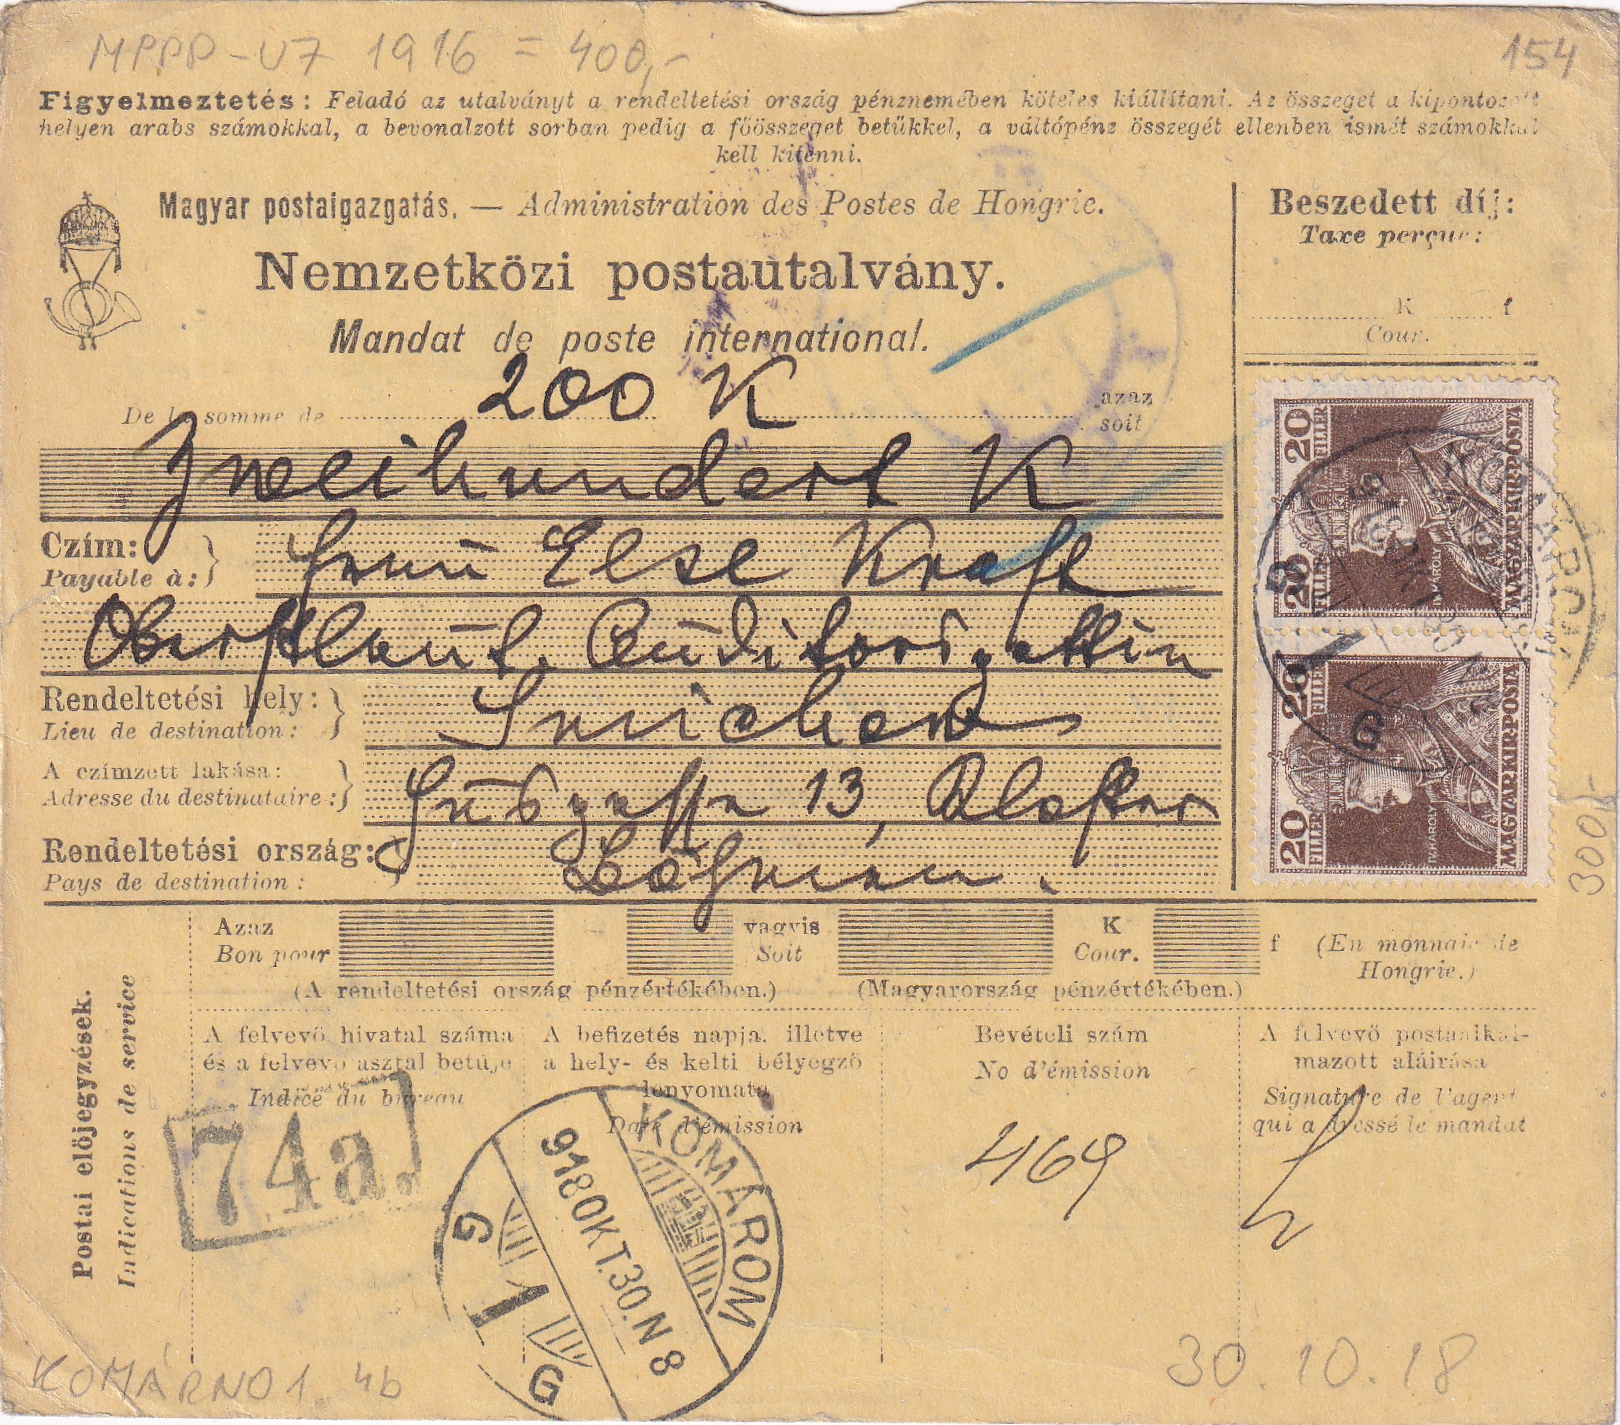 MPPP-U7 1916 = 400,-
154
Figyelmeztetés: Feladó az utalványt a rendeltetési ország pénznemében köteles kiállítani. Az összeget a kipontozott
helyen arabs számokkal, a bevonalzott sorban pedig a főösszeget betükkel, a váltópénz összegét ellenben ismét számokkal
kell kitenni.
Magyar postaigazgatás. — Administration des Postes de Hongrie.
Nemzetközi postautalvány.
Mandat de poste international.
Beszedett díj:
Taxe perçue:
K f
Cour.
De la somme de 200 K azaz
soit
Zweihundert K
Czím:
Payable à:
Frau Else Kraft
Oberstleut. Auditorsgattin
Rendeltetési hely:
Lieu de destination:
A czímzett lakása:
Adresse du destinataire:
13,
Rendeltetési ország:
Pays de destination:
Böhmen.
20 FILLÉR
MAGYAR KIR. POSTA
IV. KÁROLY
20 FILLÉR
MAGYAR KIR. POSTA
IV. KÁROLY
300,-
Azaz
Bon pour
vagyis
Soit
K
Cour.
f (En monnaie de
Hongrie.)
(A rendeltetési ország pénzértékében.)
(Magyarország pénzértékében.)
Postai előjegyzések.
Indications de service
A felvevő hivatal száma
és a felvevő asztal betűje
Indice du bureau
74a.
A befizetés napja, illetve
a hely- és kelti bélyegző
lenyomata
Date d'émission
KOMÁROM
918 OKT. 30. N 8
G 1 G
Bevételi szám
No d'émission
469
A felvevő postaalkal-
mazott aláirása
Signature de l'agent
qui a dressé le mandat
KOMÁRNO 1 4b
30.10.18